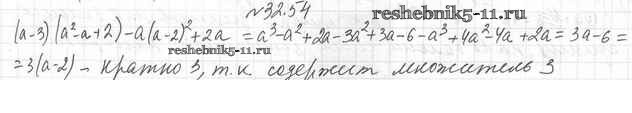 №32.54
reshebnik5-11.ru
(a-3)(a²-a+2)-a(a-2)²+2a = a³-a²+2a-3a²+3a-6-a³+4a²-4a+2a = 3a-6 =
reshebnik5-11.ru
=3(a-2) - кратно 3, т.к. содержит множитель 3